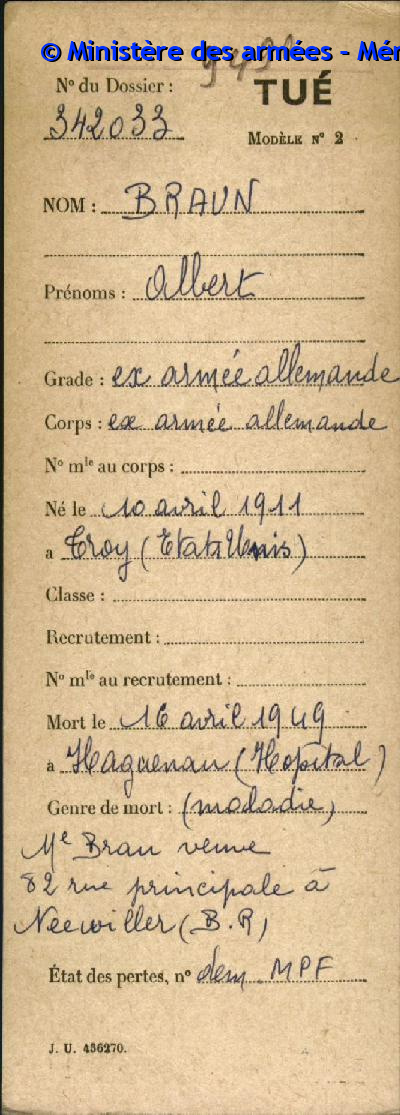 © Ministère des armées - Mém
9491
N° du Dossier :
TUÉ
342033
MODÈLE N° 2
NOM : BRAUN
Prénoms : Albert
Grade : ex armée allemande
Corps : ex armée allemande
N° mle au corps :
Né le 10 avril 1911
a Troy (Etats Unis)
Classe :
Recrutement :
N° mle au recrutement :
Mort le 16 avril 1949
a Haguenau (Hopital)
Genre de mort : (maladie)
Me Brau veuve
82 rue principale à
Neewiller (B.R)
État des pertes, n° dem MPF
J. U. 456270.